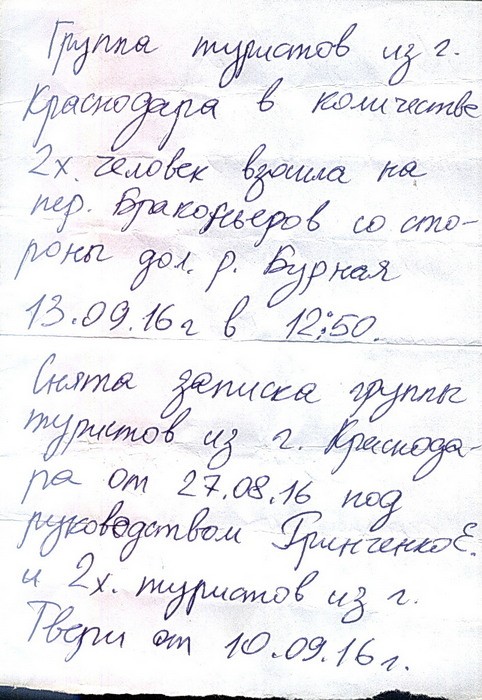 Группа туристов из г.
Краснодара в количестве
2х. человек взошла на
пер. Браконьеров со сто-
роны дол. р. Бурная
13.09.16г в 12:50.
Снята записка группы
туристов из г. Краснода-
ра от 27.08.16 под
руководством Гринченко Е.
и 2х. туристов из г.
Твери от 10.09.16г.